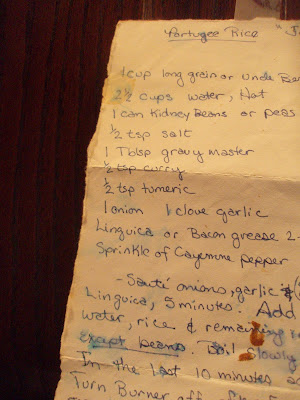 Portugee Rice
1 cup long grain or Uncle Ben
2½ cups water, Hot
1 can Kidney Beans or peas
½ tsp salt
1 Tblsp gravy master
½ tsp curry
½ tsp tumeric
1 onion 1 clove garlic
Linguica or Bacon grease 2-
Sprinkle of Cayenne pepper
- Sauté onions, garlic &
Linguica, 5 minutes. Add
water, rice & remaining
except beans. Boil slowly
In the last 10 minutes
Turn Burner off.